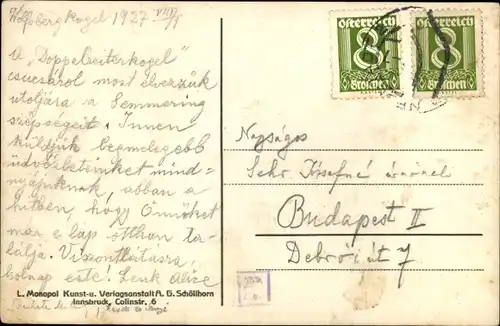 Wolfsbergkogel 1927
A „Doppelreiterkogel"
csúcsáról most élvezzük
utoljára a Semmering
szépségeit. Innen
küldjük legmelegebb
üdvözleteinket mind-
nyájuknak, abban a
hitben, hogy Önöket
már e lap otthon ta-
lálja. Viszontlátásra
holnap este! Lenk Alice
L. Monopol Kunst-u. Verlagsanstalt A. G. Schöllhorn
Innsbruck, Colinstr. 6
Österreich Österreich
8 8
Groschen Groschen
Nagyságos
Sehr Józsefné úrnőnek
Budapest II
Debrői út 7